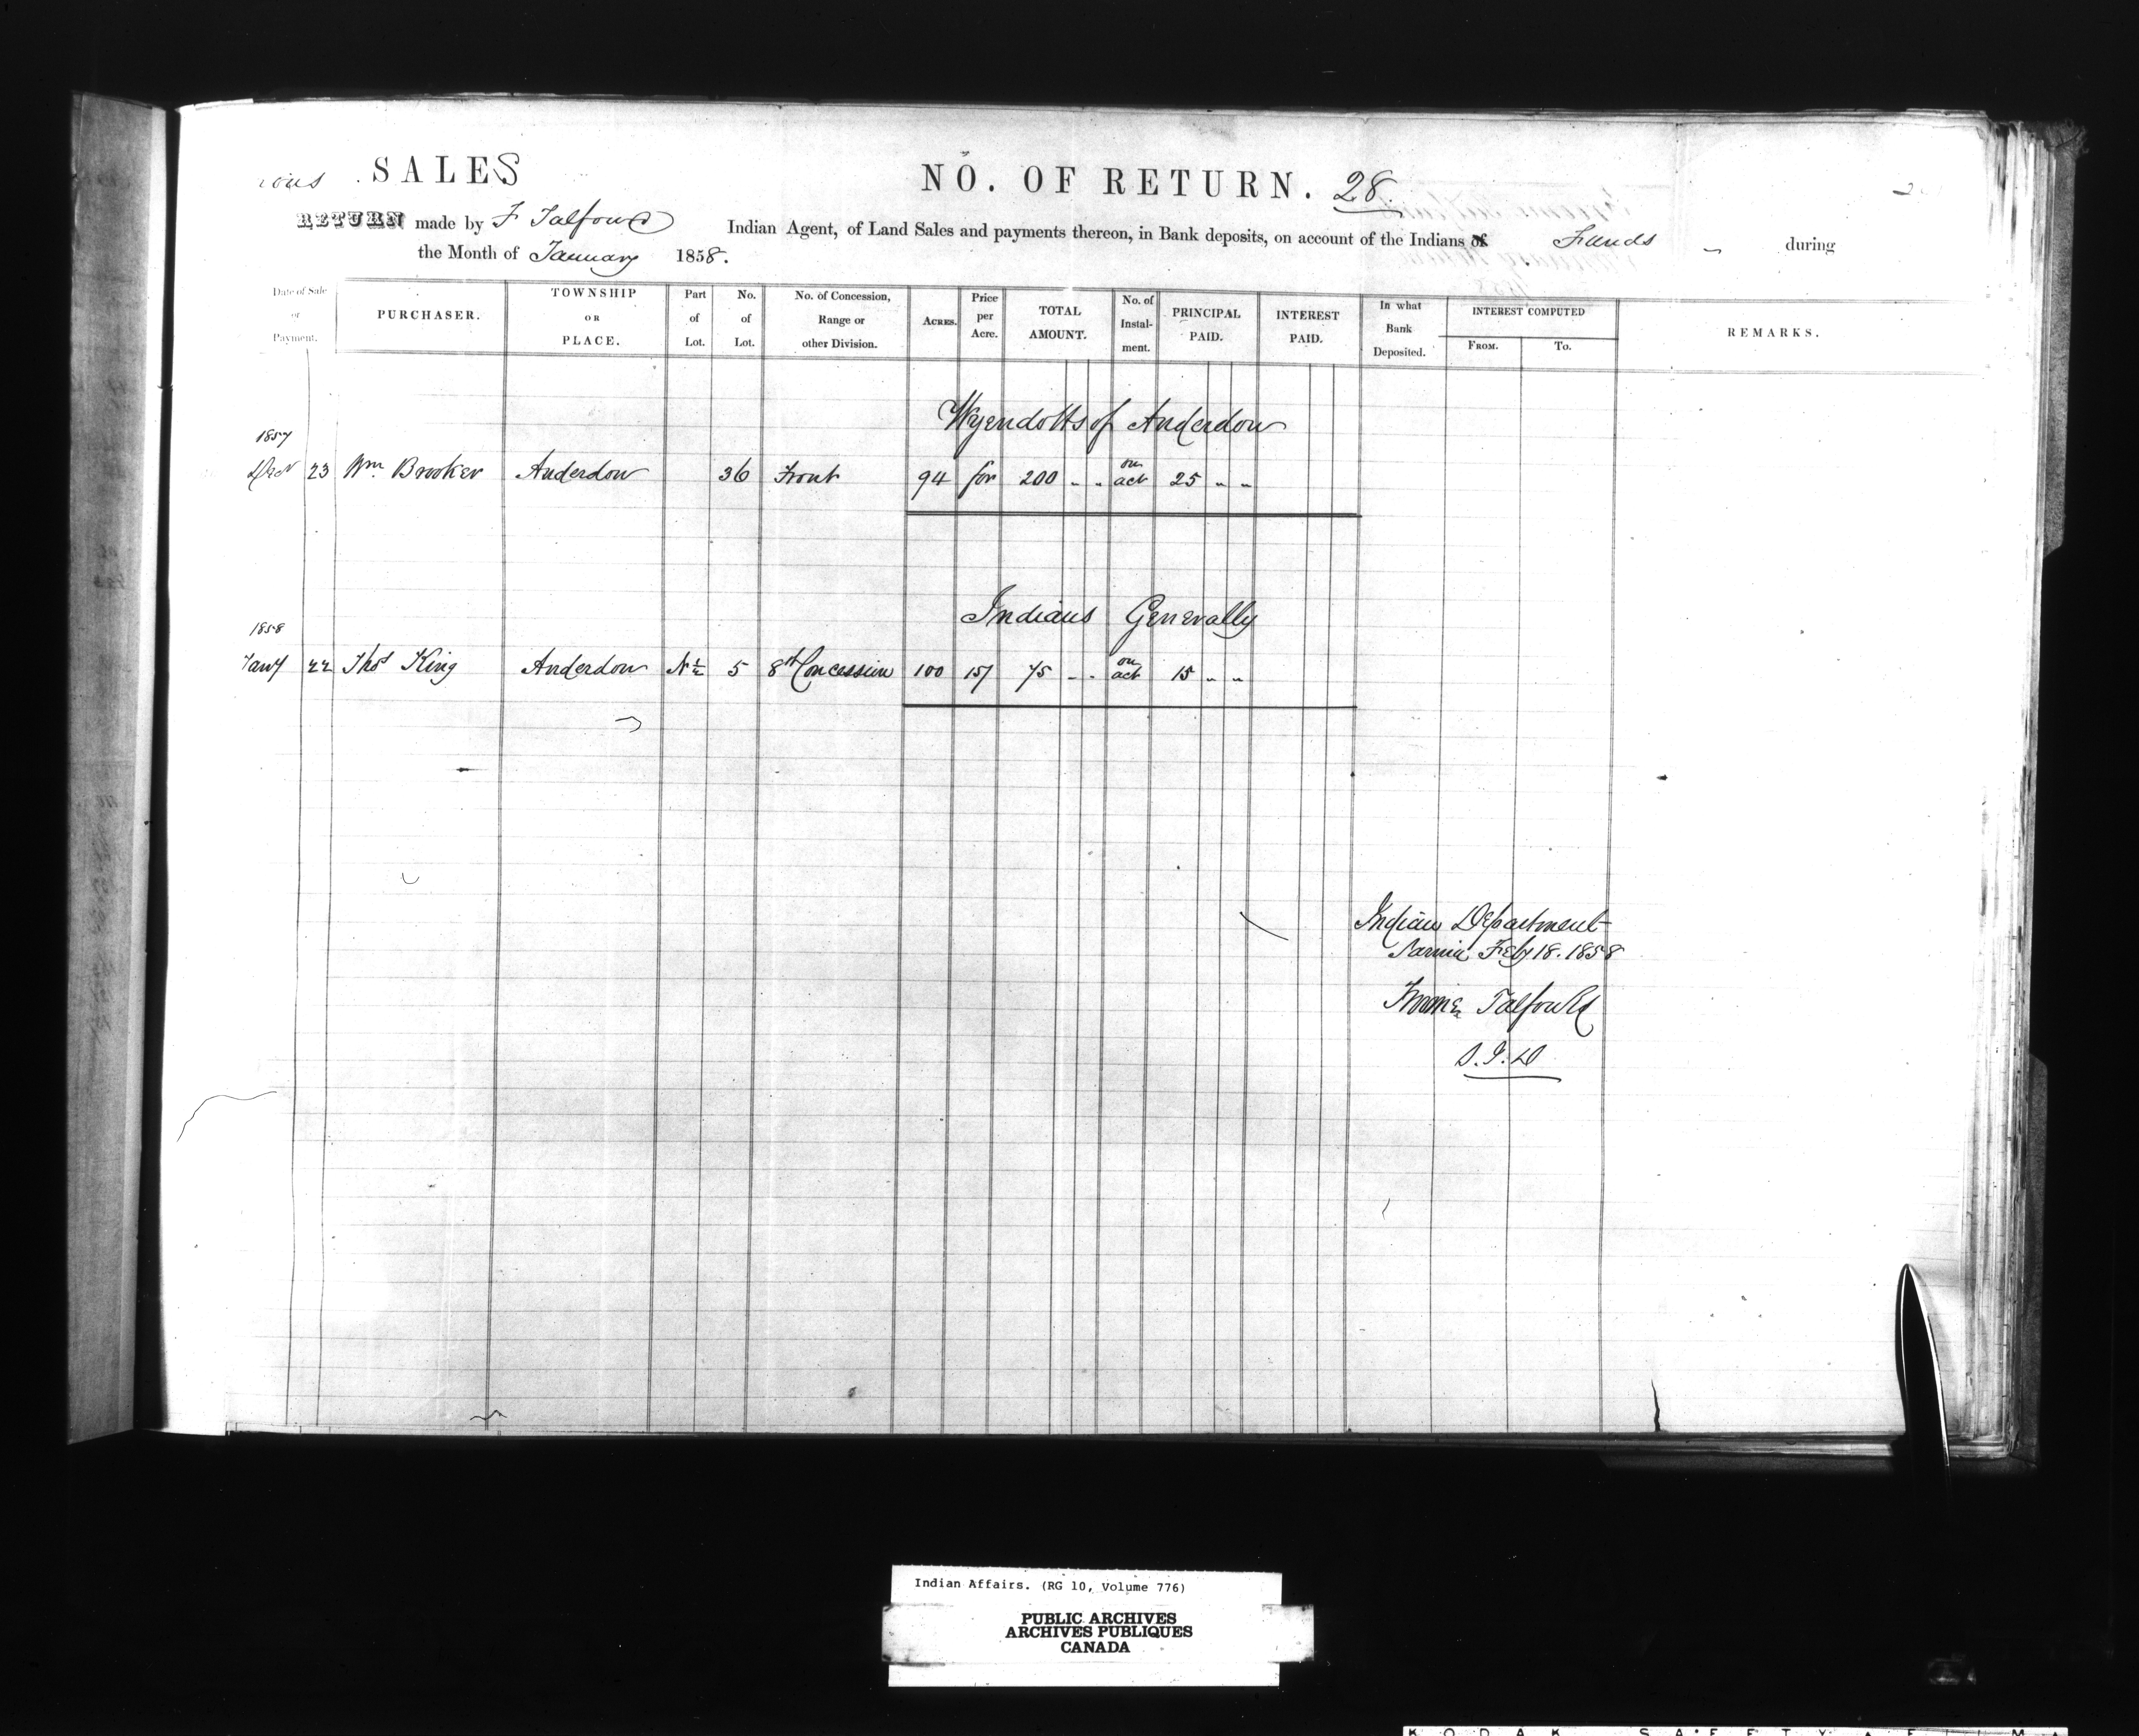 SALES
NO. OF RETURN. 28.
RETURN made by F Talfourd Indian Agent, of Land Sales and payments thereon, in Bank deposits, on account of the Indians of Funds during
the Month of January 1858.
Date of Sale or Payment. PURCHASER. TOWNSHIP OR PLACE. Part of Lot. No. of Lot. No. of Concession, Range or other Division. ACRES. Price per Acre. TOTAL AMOUNT. No. of Instal-ment. PRINCIPAL PAID. INTEREST PAID. In what Bank Deposited. INTEREST COMPUTED FROM. TO. REMARKS.
Wyendotts of Anderdon
1857
Decr 23 Wm. Brooker Anderdon 36 Front 94 for 200 - - on act 25 - -
Indians Generally
1858
Jany 22 Thos King Anderdon N½ 5 8th Concession 100 15/ 75 - - on act 15 - -
Indian Department
Sarnia Feby 18. 1858
Froome Talfourd
S.I.D
Indian Affairs. (RG 10, Volume 776)
PUBLIC ARCHIVES
ARCHIVES PUBLIQUES
CANADA
KODAK SAFETY FILM